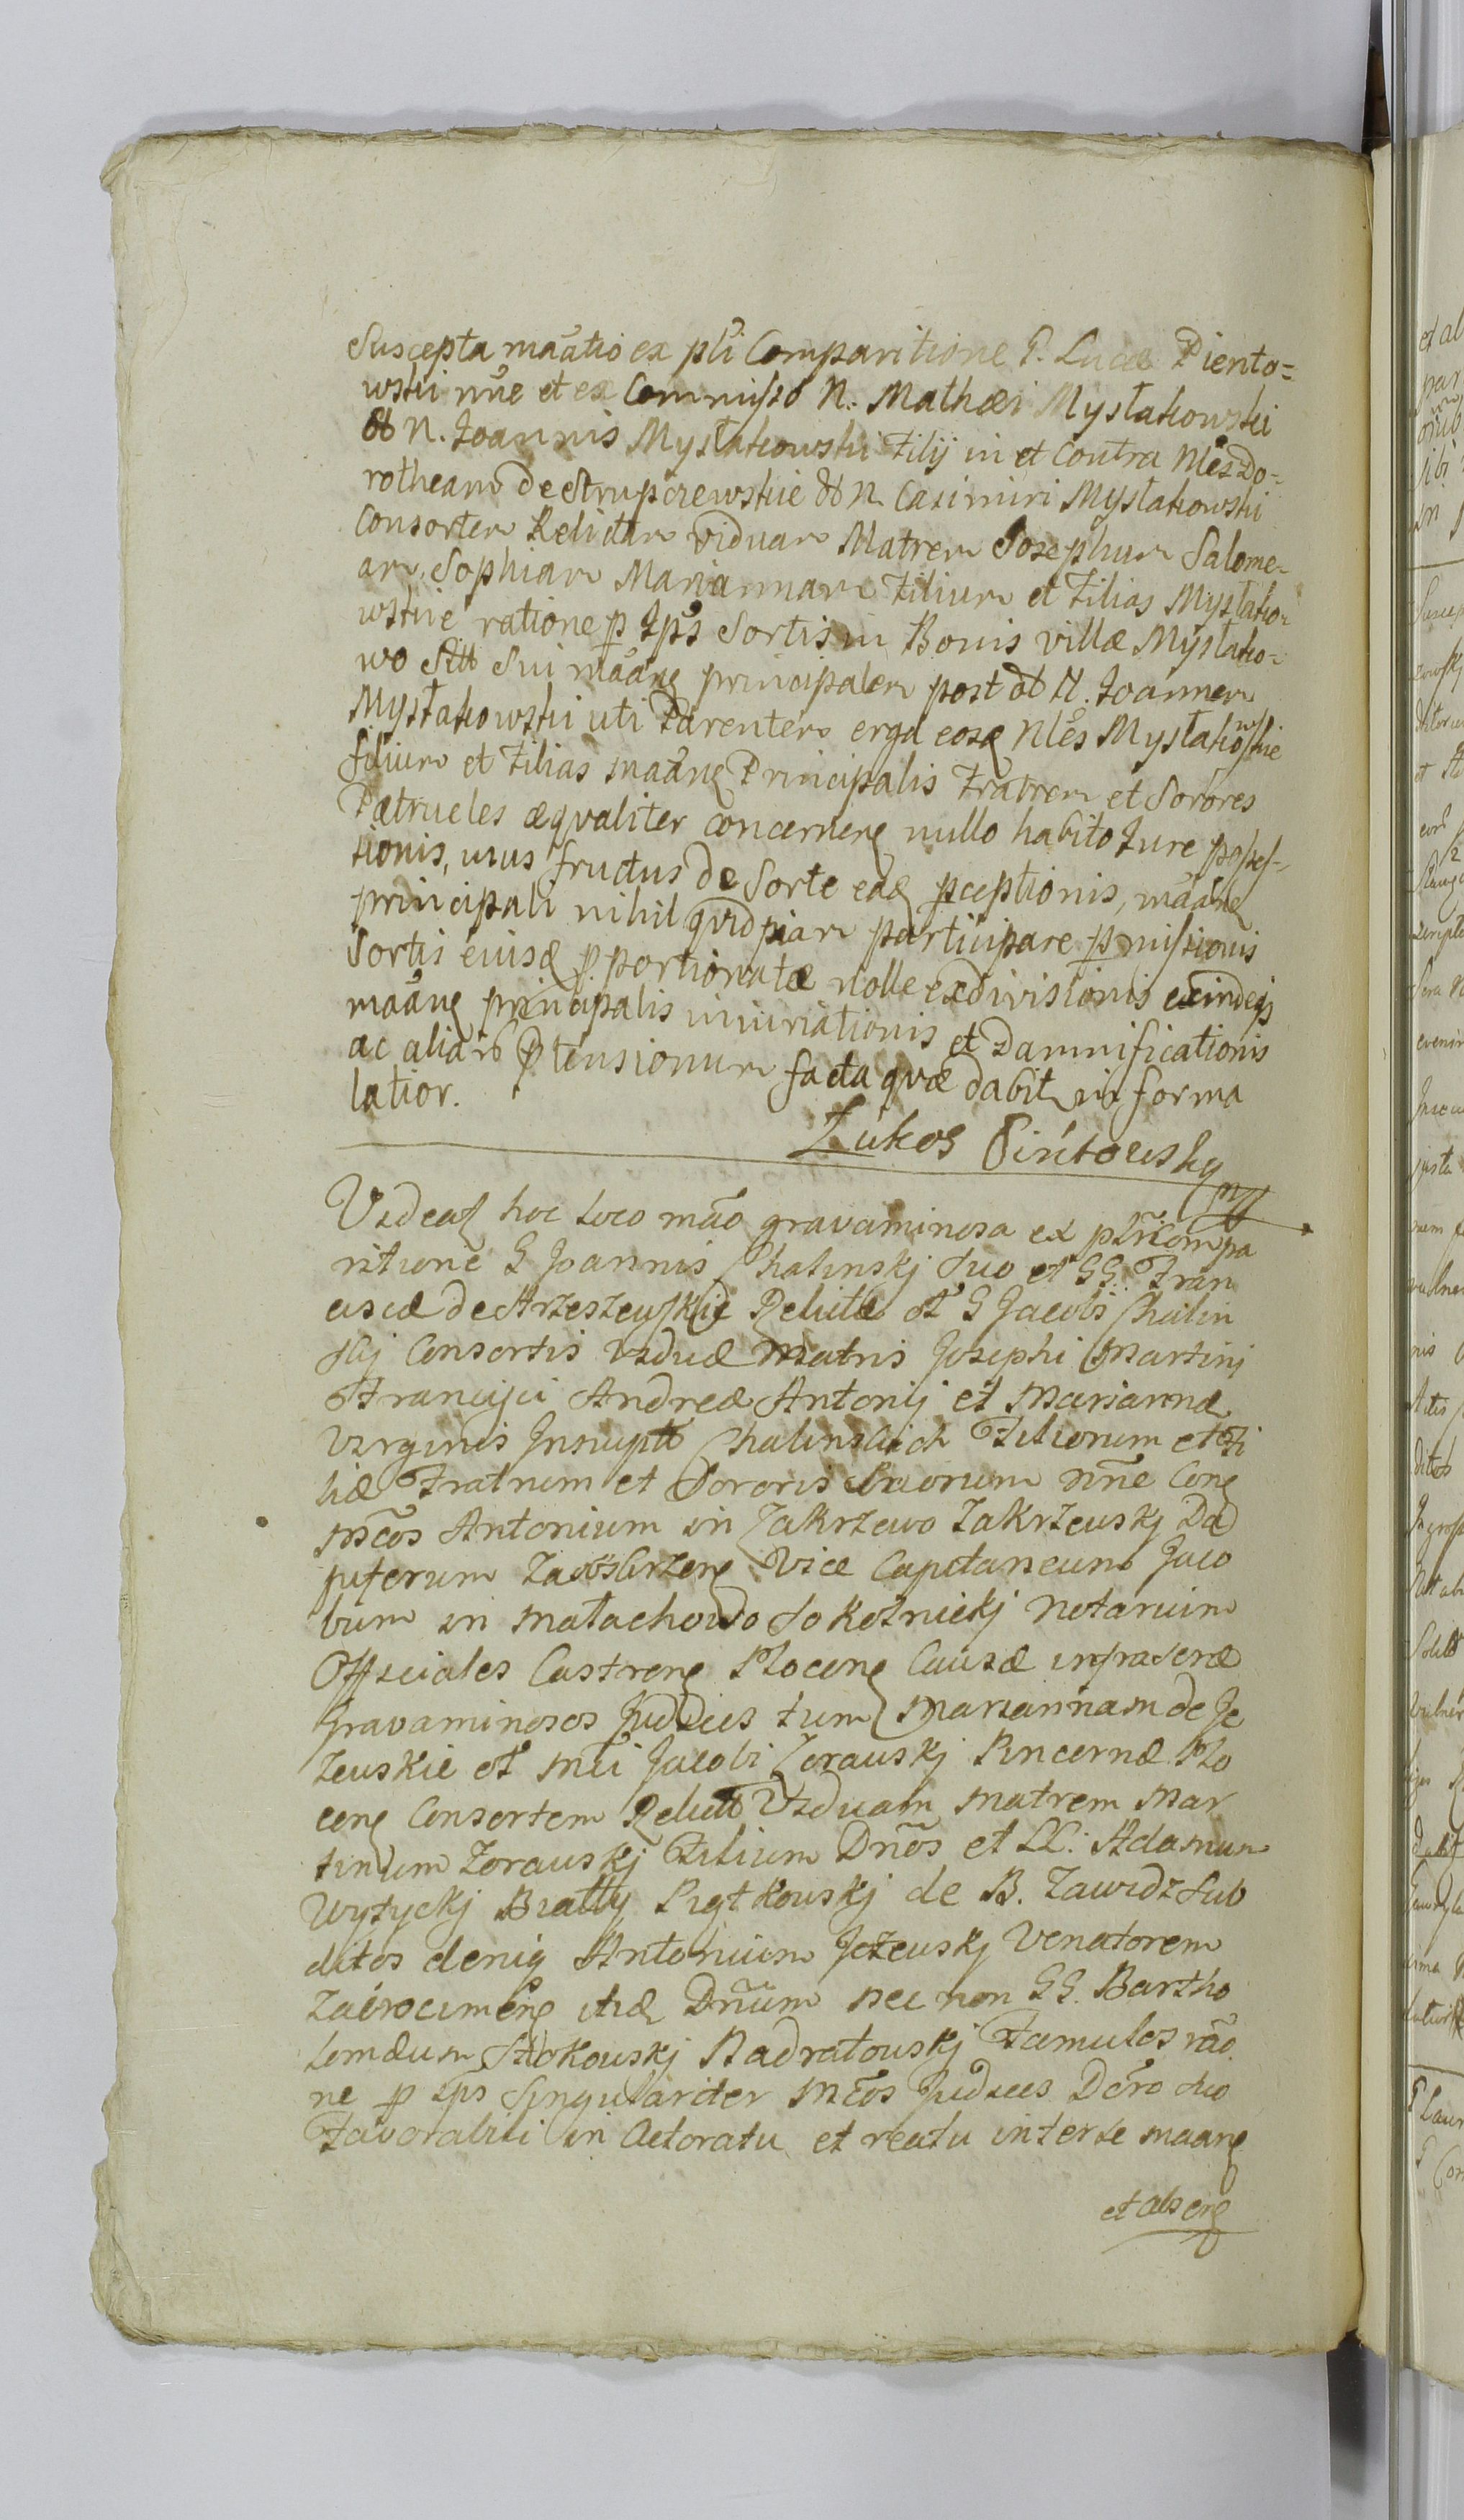 Suscepta maãtio ex pli Comparitione G. Lucæ Piento=
wski nñe et ex Commisso N. Mathæi Mysłakowski
N. Joannis Mysłakowski Filij in et Contra Nles Do=
rotheam de Strupczewskie N. Casimiri Mysłakowski
Consortem Relictam Viduam Matrem Josephum Salome-
am, Sophiam Mariannam Filium et Filias Mysłako-
wskie ratione p Ips Sortis in Bonis villæ Mysłako-
wo Sui maãne principalem post N. Joannem
Mysłakowski uti Parentem erga eosq Nles Mysłakowskie
filium et Filias maãnę Principalis Fratrem et Sorores
Patrueles æqvaliter concernenę nullo habito Jure posses-
sionis, usus fructus de Sorte eadę pceptionis, maãnę
principali nihil qvidpiam participare pmissionis
Sortis eiusdę pportionatæ nolle exdivisionis exindeqз
maãnę principalis iniuriationis et Damnificationis
ac aliarũ Ptensionum facta qvæ dabit in forma
latior.
Lukos Pintowsky
mp
Videat hoc loco mão gravaminosa ex pli Compa
ritione G Joannis Chalinskj suo et GG. Fran
ciscæ de Arzeszewskie Relictæ G Jacobi Chalin
skj Consortis viduæ Matris Josephi Martinj
Francisci Andreæ Antonij et Mariannæ
Virginis Innuptæ Chalinskich Filiorum et Fi
liæ Fratrum et Sororis suorum nñe Conę
Mcos Antonium in Zakrzewo Zakrzewskj Da
piferum Zawskrzenę Vice Capitaneum Jaco
bum in Małachowo Sokolnickj Notarium
Officiales Castrenę Plocenę Causæ infrascræ
gravaminosos Judices tum Mariannam de Je
żewskie Mci Jacobi Zorawskj Pincernæ Plo
cenę Consortem Relictã Viduam Matrem Mar
tinum Zorawskj Filium Dños et LL. Adamum
Wyżyckj Białły Piątkowskj de B. Zawidz Sub
ditos deniq Antonium Jeżewskj Venatorem
Zakrocimenę itidę Dñum nec non GG. Bartho
lomæum Słokowskj Nadratowskj Famulos rão
ne p ips Singulariter Mcos Judices Dcro suo
Favorabili in Actoratu et reatu inter se maanę
et absenę